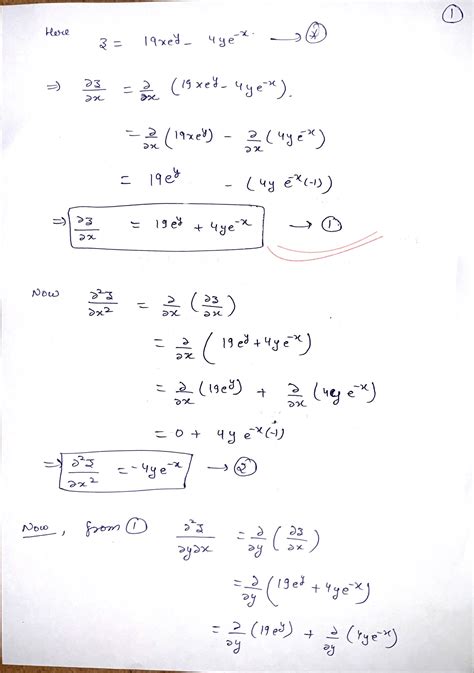 ①
Here z = 19xe^y - 4ye^-x. → ⊛
⇒ ∂z/∂x = ∂/∂x (19xe^y - 4ye^-x).
= ∂/∂x (19xe^y) - ∂/∂x (4ye^-x)
= 19e^y - (4y e^-x(-1))
⇒ ∂z/∂x = 19e^y + 4ye^-x → ①
Now ∂²z/∂x² = ∂/∂x (∂z/∂x)
= ∂/∂x (19e^y + 4ye^-x)
= ∂/∂x (19e^y) + ∂/∂x (4y e^-x)
= 0 + 4y e^-x(-1)
⇒ ∂²z/∂x² = -4ye^-x → ②
Now, from ① ∂²z/∂y∂x = ∂/∂y (∂z/∂x)
= ∂/∂y (19e^y + 4ye^-x)
= ∂/∂y (19e^y) + ∂/∂y (4ye^-x)